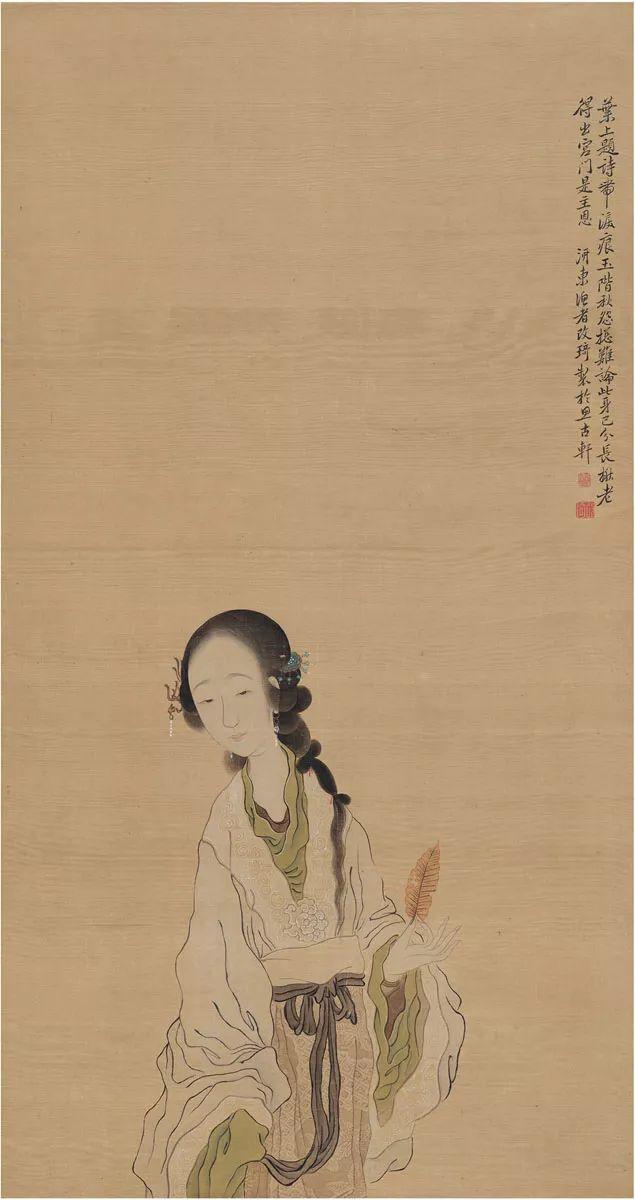 葉上題詩帶淚痕玉階秋怨揔難論此身已分長楸老
得出宮门是主恩　泖東漁者改琦製於古軒